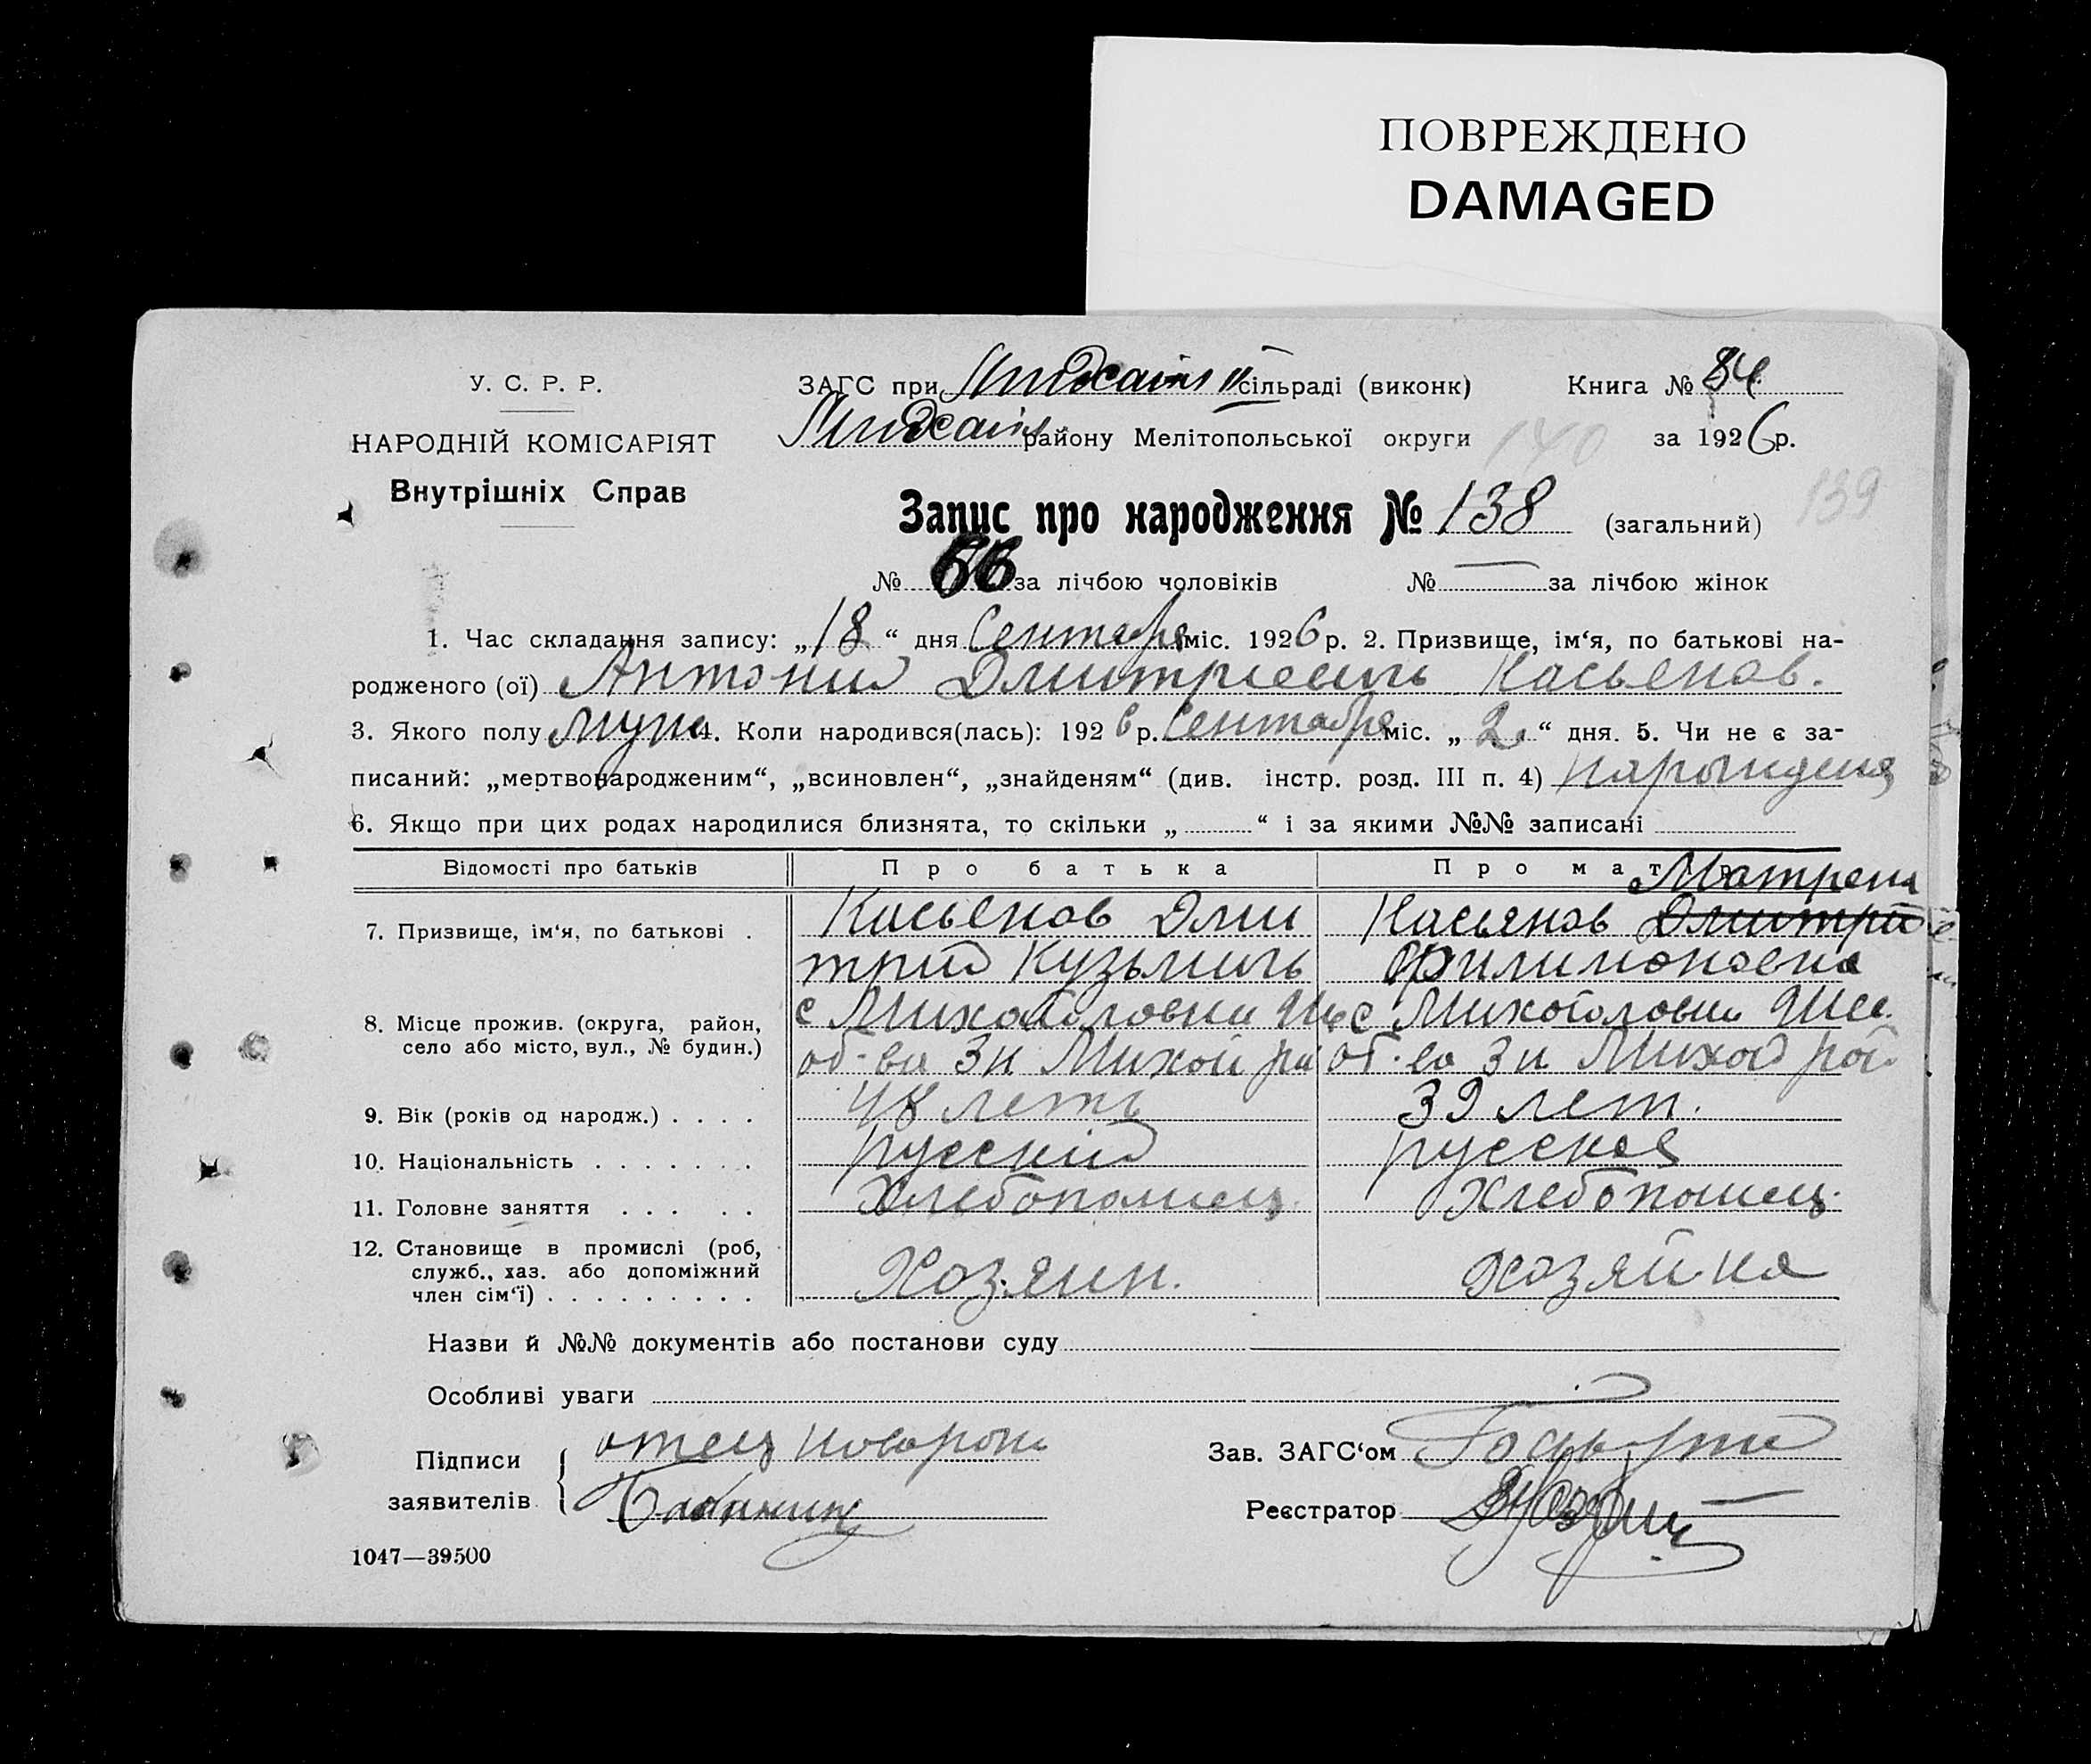 ПОВРЕЖДЕНО
DAMAGED
У. С. Р. Р.
НАРОДНІЙ КОМІСАРІЯТ
Внутрішніх Справ
ЗАГС при сільраді (виконк)
Книга № 84
району Мелітопольської округи
140
за 1926 р.
Запис про народження № 138 (загальний)
139
№ 66 за лічбою чоловіків № — за лічбою жінок
1. Час складання запису: „18“ дня Сентября міс. 1926 р. 2. Призвище, ім‘я, по батькові на-
родженого (ої) Антоний Дмитриевичь Касьенов.
3. Якого полу 4. Коли народився(лась): 1926 р. Сентября міс. „2“ дня. 5. Чи не є за-
писаний: „мертвонародженим“, „всиновлен“, „знайденям“ (див. інстр. розд. III п. 4)
6. Якщо при цих родах народилися близнята, то скільки „ “ і за якими №№ записані
Відомості про батьків
Про батька
Про мат
Матрена
7. Призвище, ім‘я, по батькові .
Касьенов Дми
трий Кузьмичь
Касьянов Дмитрий
Филимоновна
8. Місце прожив. (округа, район,
село або місто, вул., № будин.)
с Михайловки
об-ва 3 и Михой ра
с Михайловки
об-ва 3 и Михой рай
9. Вік (років од народж.) . . . .
48 леть
39 лет.
10. Національність . . . . . . .
русский
русская
11. Головне заняття . . . . .
Хлебопашец
Хлебопашец.
12. Становище в промислі (роб,
служб., хаз. або допоміжний
член сім‘ї) . . . . . . . . .
Хозяин.
Хозяйка
Назви й №№ документів або постанови суду
Особливі уваги
Підписи
заявителів
отец
Зав. ЗАГС‘ом
Реєстратор
1047—39500